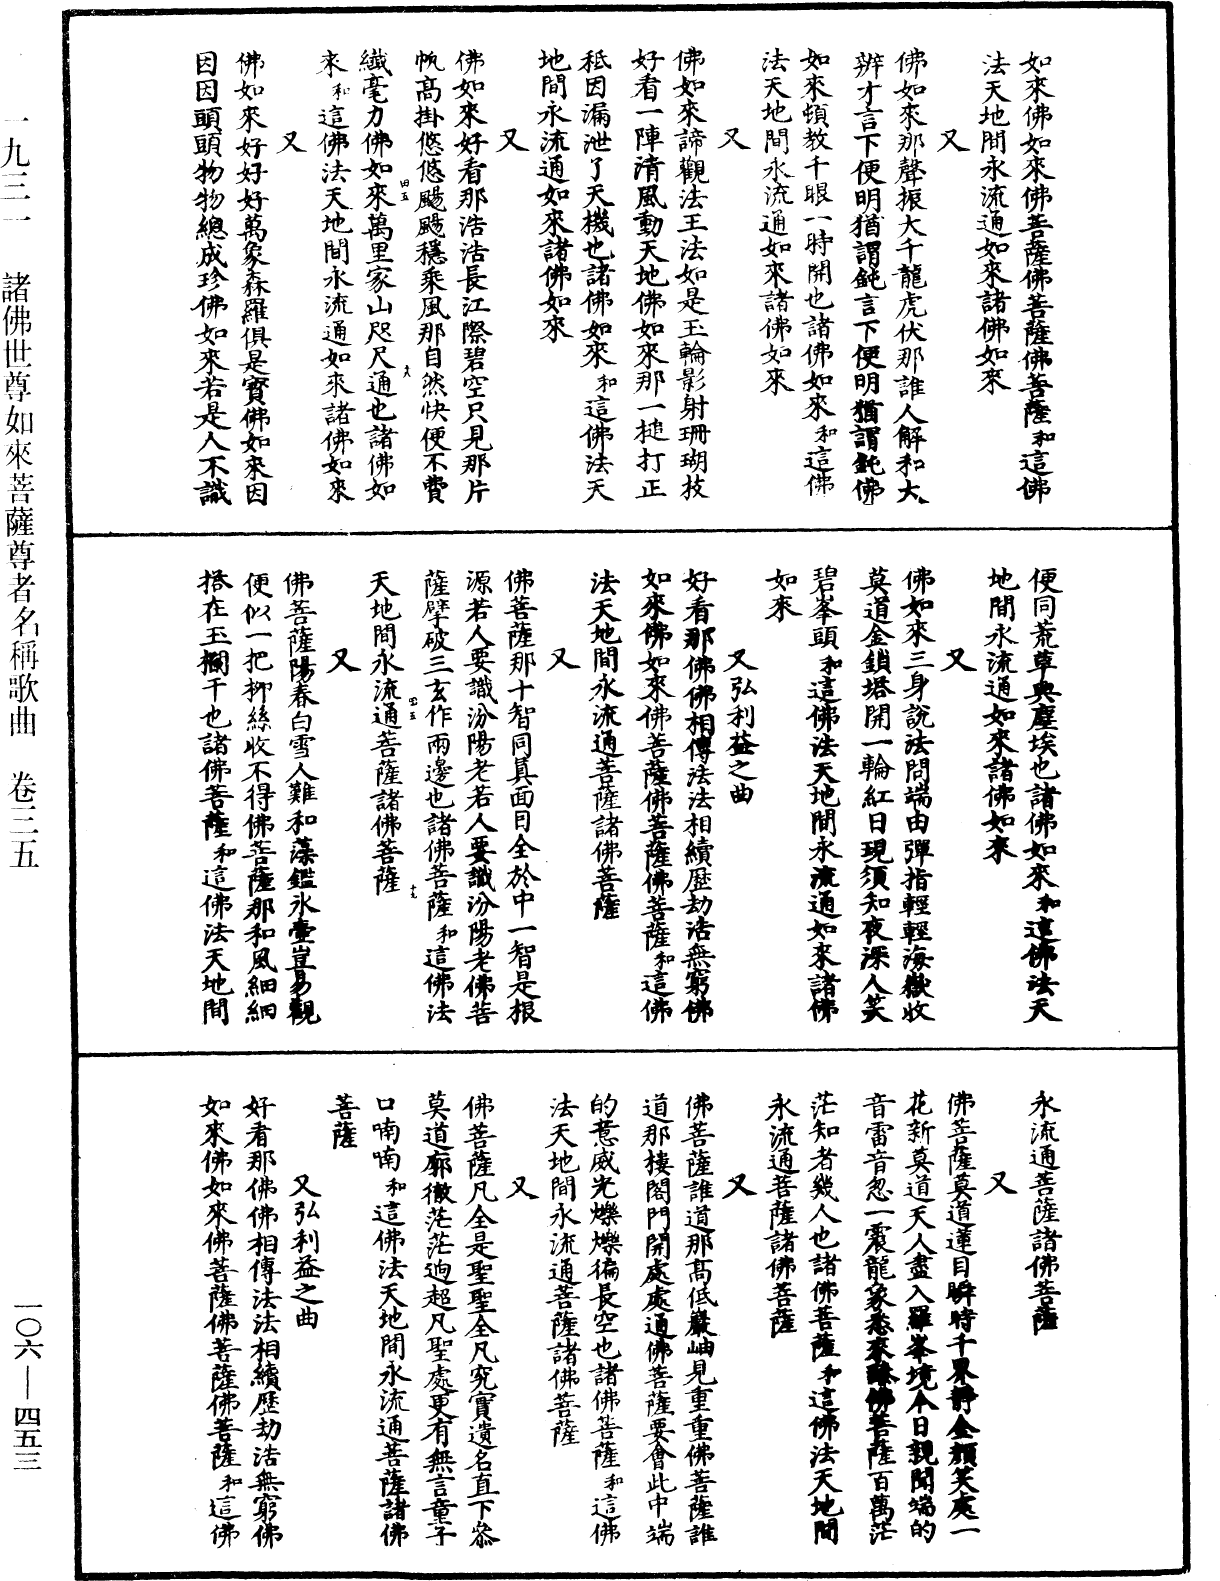 如來佛如來佛菩薩佛菩薩佛菩薩和這佛
法天地間永流通如來諸佛如來
又
佛如來那聲振大千龍虎伏那誰人解和大
辨才言下便明猶謂鈍言下便明猶謂鈍佛
如來頓教千眼一時開也諸佛如來和這佛
法天地間永流通如來諸佛如來
又
佛如來諦觀法王法如是玉輪影射珊瑚技
好看一陣清風動天地佛如來那一槌打正
秪因漏泄了天機也諸佛如來和這佛法天
地間永流通如來諸佛如來
又
佛如來好看那浩浩長江際碧空只見那片
帆高掛悠悠颺颺穩乘風那自然快便不費
纖毫力佛如來萬里家山咫尺通也諸佛如
來和這佛法天地間永流通如來諸佛如來
又
佛如來好好好萬象森羅俱是寶佛如來因
因因頭頭物物總成珍佛如來若是人不識
便同荒草與塵埃也諸佛如來和這佛法天
地間永流通如來諸佛如來
又
佛如來三身說法問端由彈指輕輕海嶽收
莫道金鎖塔開一輪紅日現須知夜深人笑
碧峯頭和這佛法天地間永流通如來諸佛
如來
又弘利益之曲
好看那佛佛相傳法法相續歷劫活無窮佛
如來佛如來佛菩薩佛菩薩佛菩薩和這佛
法天地間永流通菩薩諸佛菩薩
又
佛菩薩那十智同眞面目全於中一智是根
源若人要識汾陽老若人要識汾陽老佛菩
薩擘破三玄作兩邊也諸佛菩薩和這佛法
天地間永流通菩薩諸佛菩薩
又
佛菩薩陽春白雪人難和藻鑑氷壷豈易觀
便似一把柳絲收不得佛菩薩那和風細細
搭在玉欄干也諸佛菩薩和這佛法天地間
永流通菩薩諸佛菩薩
又
佛菩薩莫道蓮目瞬時千界靜金顏笑處一
花新莫道天人盡入羅峯境今日親聞端的
音雷音忽一震龍象悉來臻佛菩薩百萬茫
茫知者幾人也諸佛菩薩和這佛法天地間
永流通菩薩諸佛菩薩
又
佛菩薩誰道那高低巖岫見重重佛菩薩誰
道那樓閣門開處處通佛菩薩要會此中端
的意威光爍爍徧長空也諸佛菩薩和這佛
法天地間永流通菩薩諸佛菩薩
又
佛菩薩凡全是聖聖全凡究實遺名直下叅
莫道廓徹茫茫逈超凡聖處更有無言童子
口喃喃和這佛法天地間永流通菩薩諸佛
菩薩
又弘利益之曲
好看那佛佛相傳法法相續歷劫活無窮佛
如來佛如來佛菩薩佛菩薩佛菩薩和這佛
一九三一 諸佛世尊如來菩薩尊者名稱歌曲 卷三五
一〇六—四五三